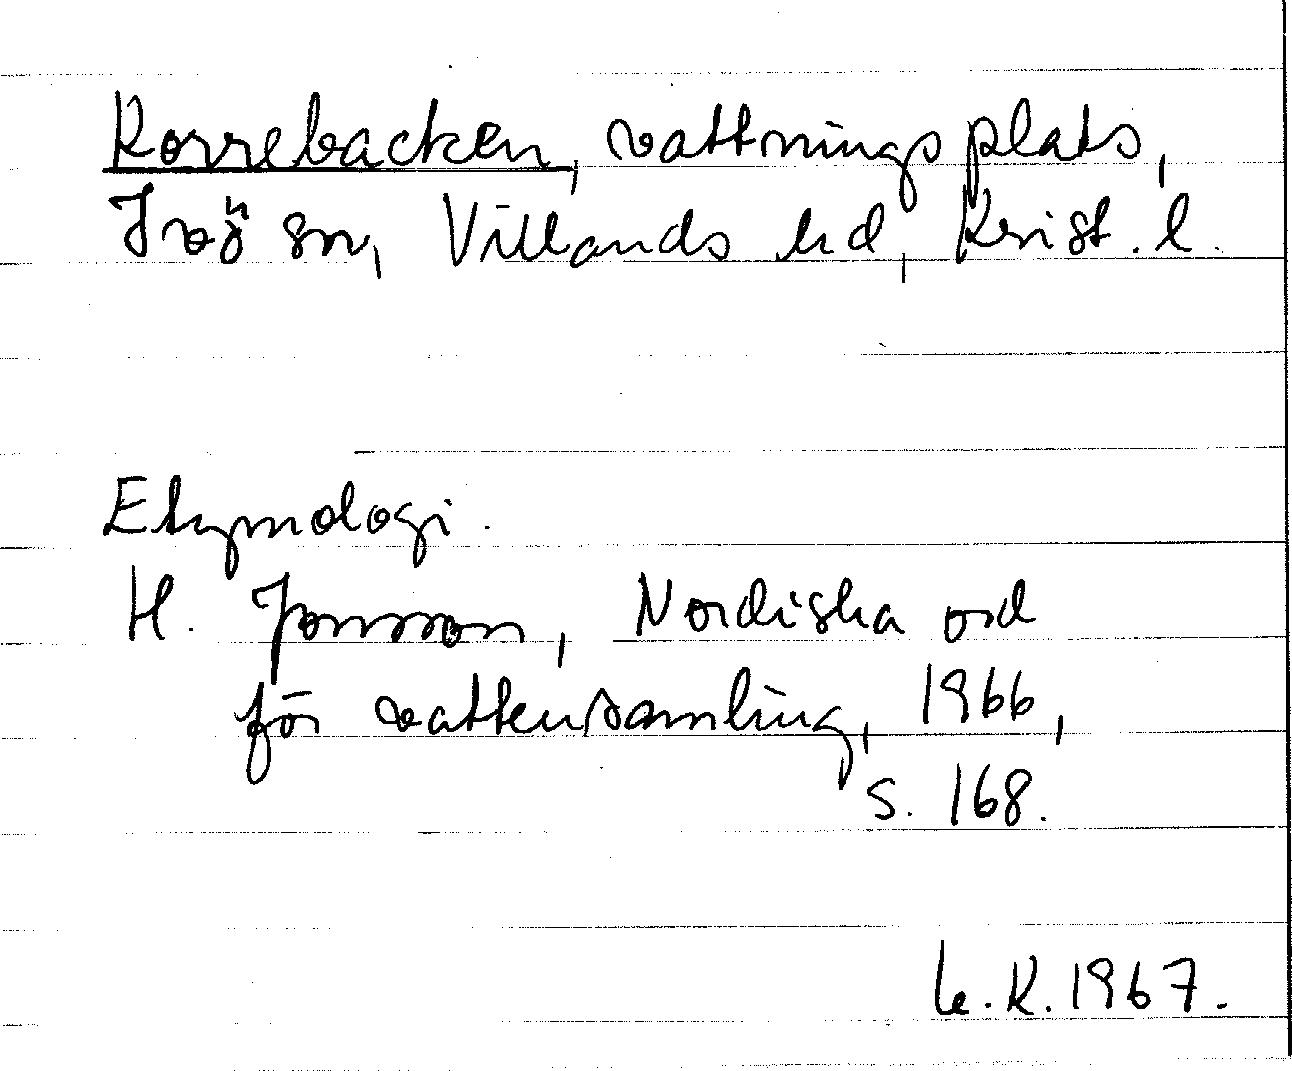 Korrebacken, vattningsplats,
Ivö sn, Villands hd, Krist. l.
Etymologi.
H. Jonsson, Nordiska ord
för vattensamling, 1966,
s. 168.
K. 1967.